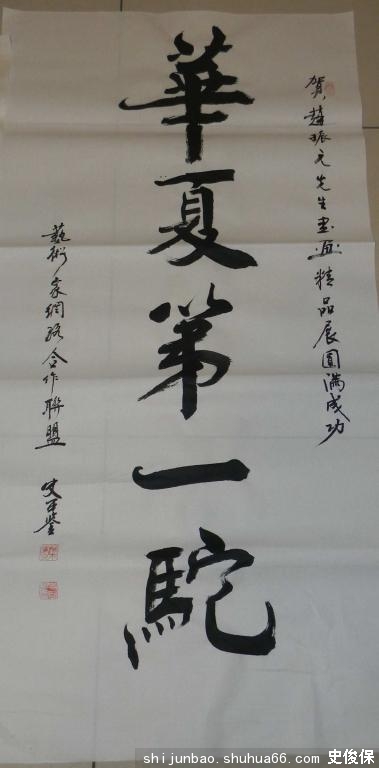 賀趙振元先生書畫精品展圓滿成功
華夏第一駝
藝術家網路合作聯盟
shijunbao.shuhua66.com 史俊保